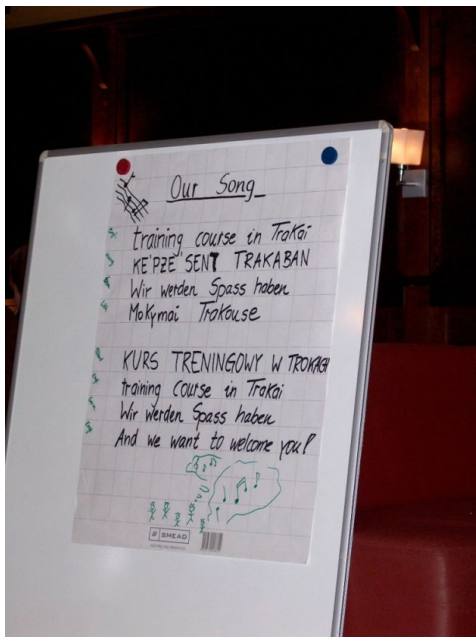 Our Song
training course in Trakai
KE'PZE'SENT TRAKABAN
Wir werden Spass haben
Mokymai Trakouse
KURS TRENINGOWY W TROKACH
training course in Trakai
Wir werden Spass haben
And we want to welcome you!
SMEAD